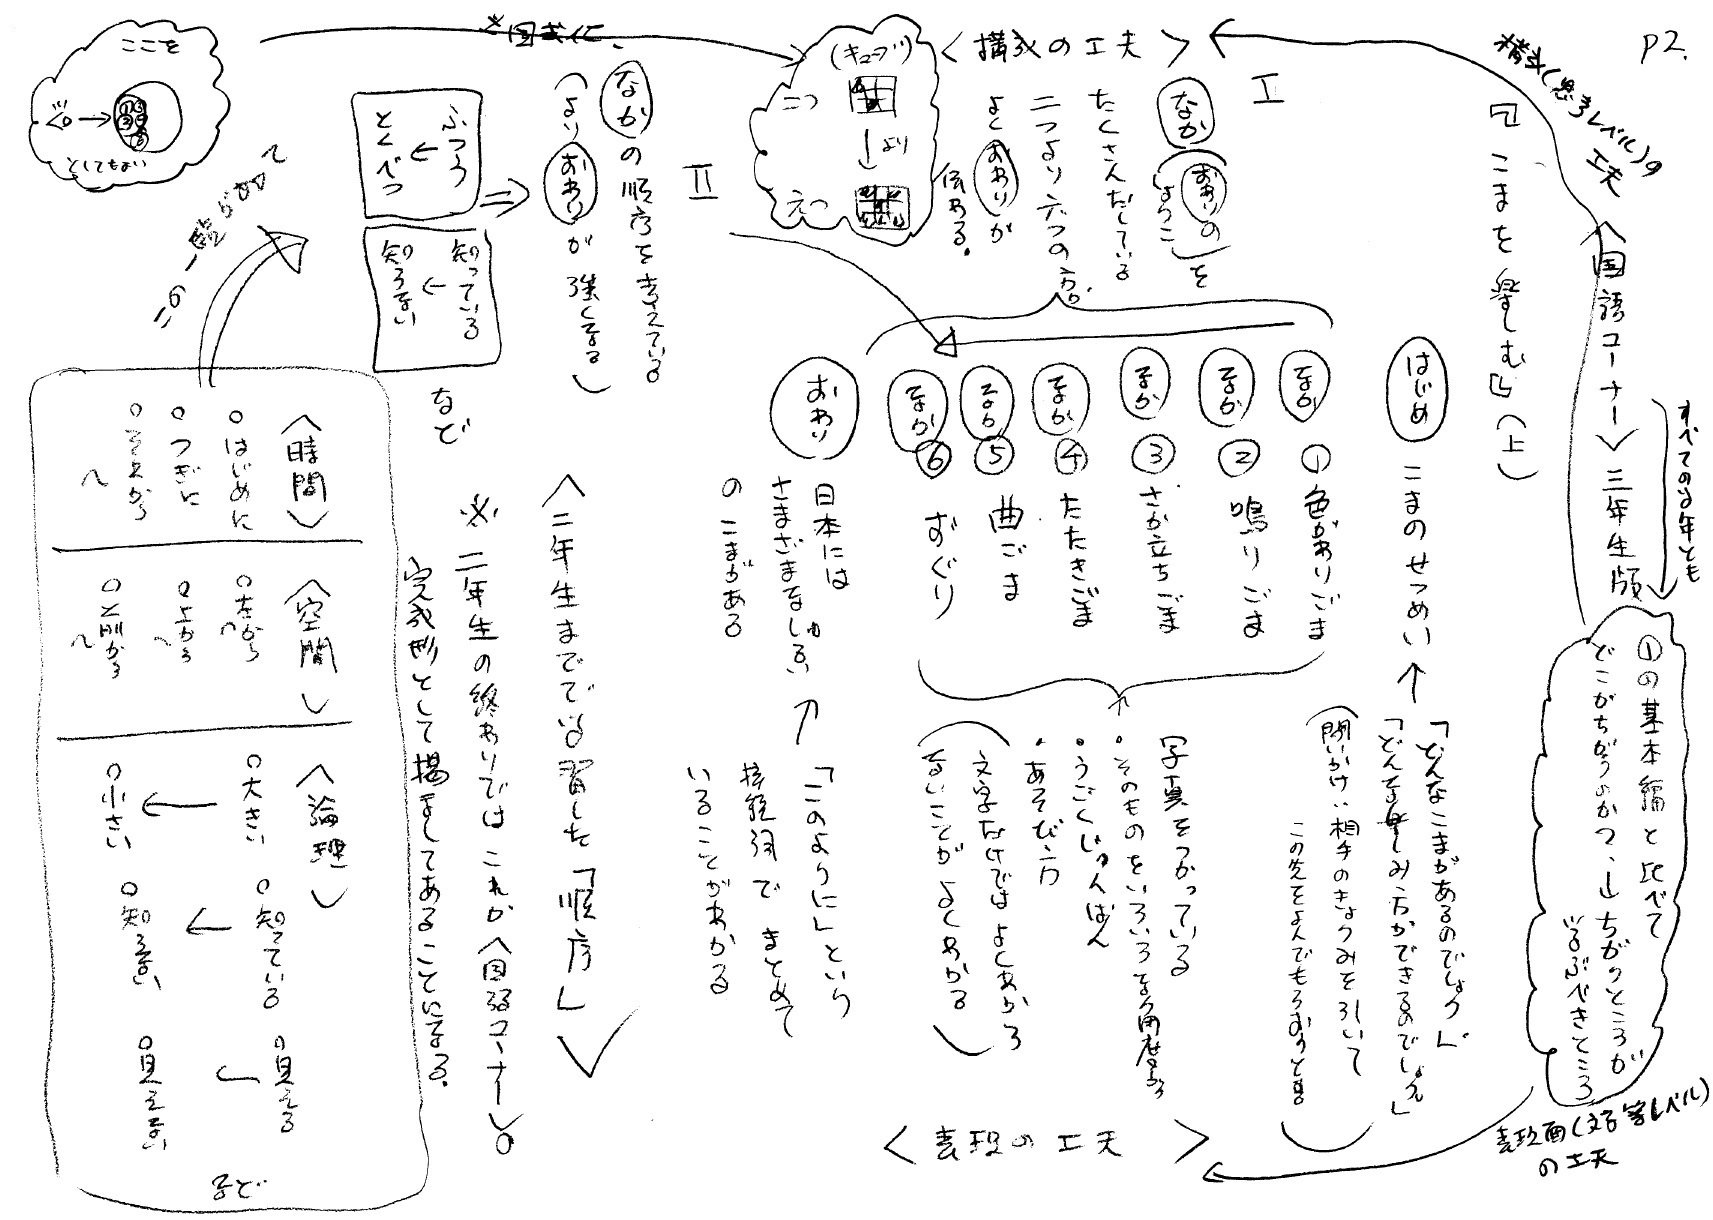 P2.
〈国語コーナー〉三年生版
すべての学年とも
①の基本編と比べて
どこがちがうのか
ちがうところが
学ぶべきところ
構成(思考レベル)の
工夫
表現面(文字レベル)
の工夫
『こまを楽しむ』(上)
〈構成の工夫〉
Ⅰ
なか(おわりのしょうこ)を
たくさんだしている
二つより六つの方が
よくおわりが
伝わる。
(キューブ)
二つ
↓より
六つ
はじめ こまのせつめい
「どんなこまがあるのでしょう」
「どんな楽しみ方ができるのでしょう」
問いかけ、相手のきょうみを引いて
この先をよんでもらおうとする
なか ① 色がわりごま
なか ② 鳴りごま
なか ③ さか立ちごま
なか ④ たたきごま
なか ⑤ 曲ごま
なか ⑥ ずぐり
写真をつかっている
・そのものをいろいろな角度から
・うごくじゅんばん
・あそび方
(文字だけではよくわからないことがよくわかる)
おわり 日本には
さまざまなしゅるい
のこまがある
「このように」という
接続詞でまとめて
いることがわかる
〈表現の工夫〉
Ⅱ
なかの順序を考えている
(よりおわりが強くなる)
ふつう
↓
とくべつ
知っている
↓
知らない
など
※図式化
ここを
としてもよい
〈二年生までで学習した「順序」〉
※二年生の終わりではこれが〈国語コーナー〉の
完成形として掲示してあることになる。
〈時間〉
○はじめに
○つぎに
○それから
〈空間〉
○左から
○上から
○前から
〈論理〉
○大きい
↓
○小さい
○知っている
↓
○知らない
○見える
↓
○見えない
など